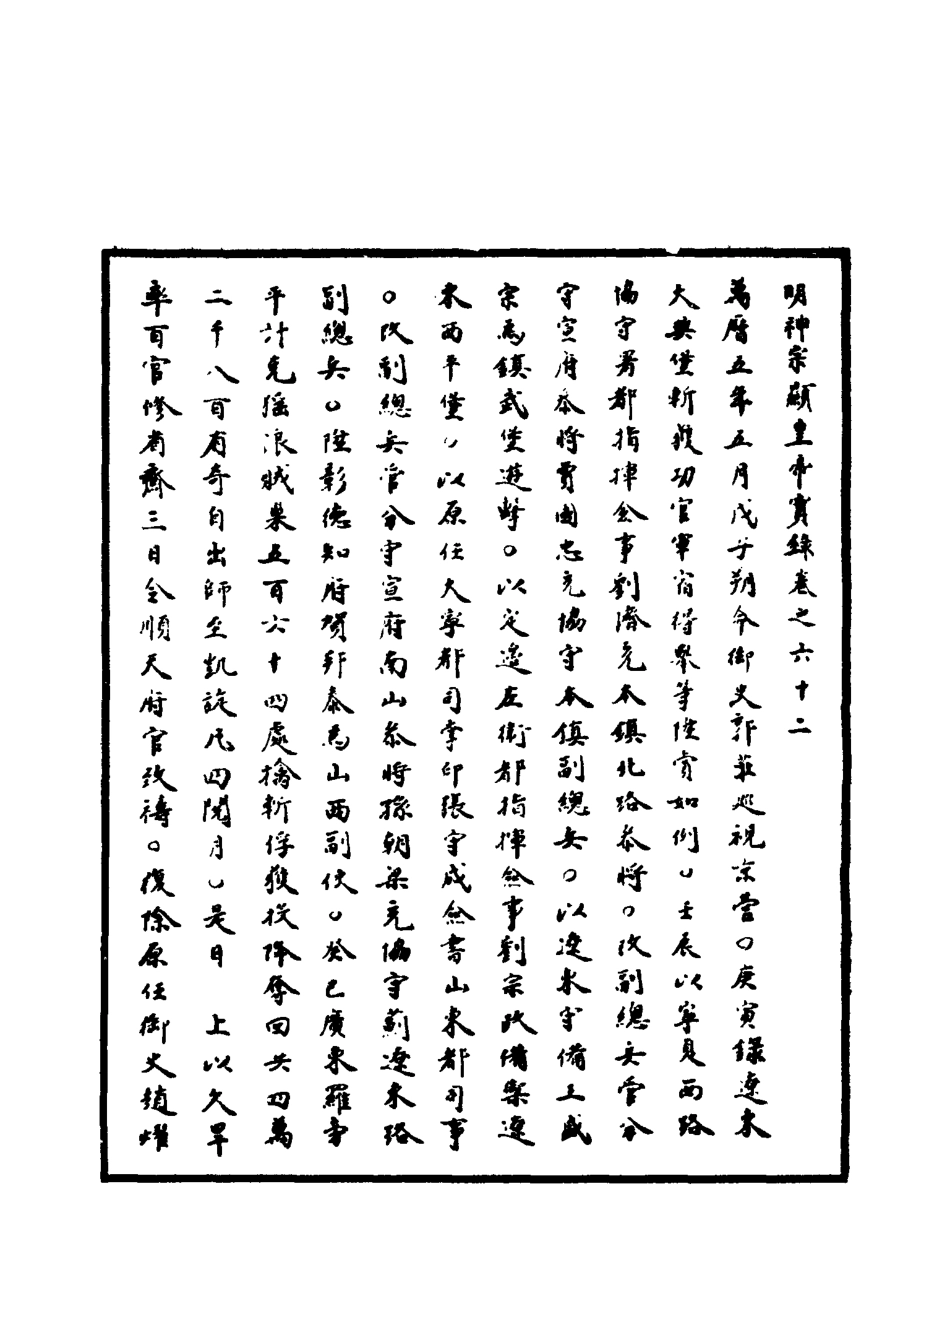 明神宗顯皇帝實錄卷之六十二
萬曆五年五月戊子朔令御史郭莊巡視京營○庚寅錄遼東
大奠堡斬獲功官軍宿得聚等陞賞如例○壬辰以寧夏西路
協守署都指揮僉事劉濟充本鎮北路叅將○改副總兵管分
守宣府叅將賈國忠充協守本鎮副總兵○以遼東守備王盛
宗為鎮武堡遊擊○以定遼左衛都指揮僉事劉宗改備禦遼
東西平堡○以原任大寧都司掌印張守成僉書山東都司事
○改副總兵管分守宣府南山叅將孫朝梁充協守薊遼東路
副總兵○陞彰德知府賀邦泰為山西副使○癸巳廣東羅旁
平計克猺浪賊巢五百六十四處擒斬俘獲投降奪回共四萬
二千八百有奇自出師至凱旋凡四閱月○是日 上以久旱
率百官修省齋三日令順天府官致禱○復除原任御史趙燿